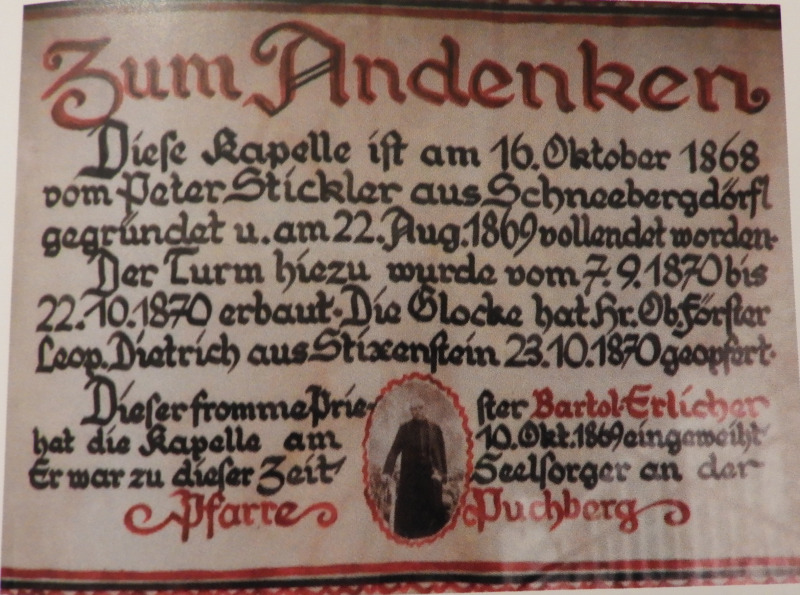 Zum Andenken
Diese Kapelle ist am 16. Oktober 1868
vom Peter Stickler aus Schneebergdörfl
gegründet u. am 22. Aug. 1869 vollendet worden.
Der Turm hiezu wurde vom 7. 9. 1870 bis
22. 10. 1870 erbaut. Die Glocke hat Hr. Ob. Förster
Leop. Dietrich aus Stixenstein 23. 10. 1870 geopfert.
Dieser fromme Prie- ster Bartol. Erlicher
hat die Kapelle am 10. Okt. 1869 eingeweiht
Er war zu dieser Zeit Seelsorger an der
Pfarre Puchberg